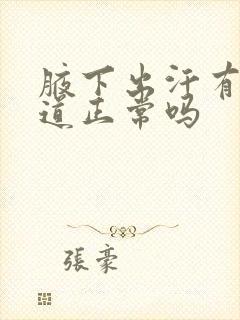 腋下出汗有
道正常吗
張豪